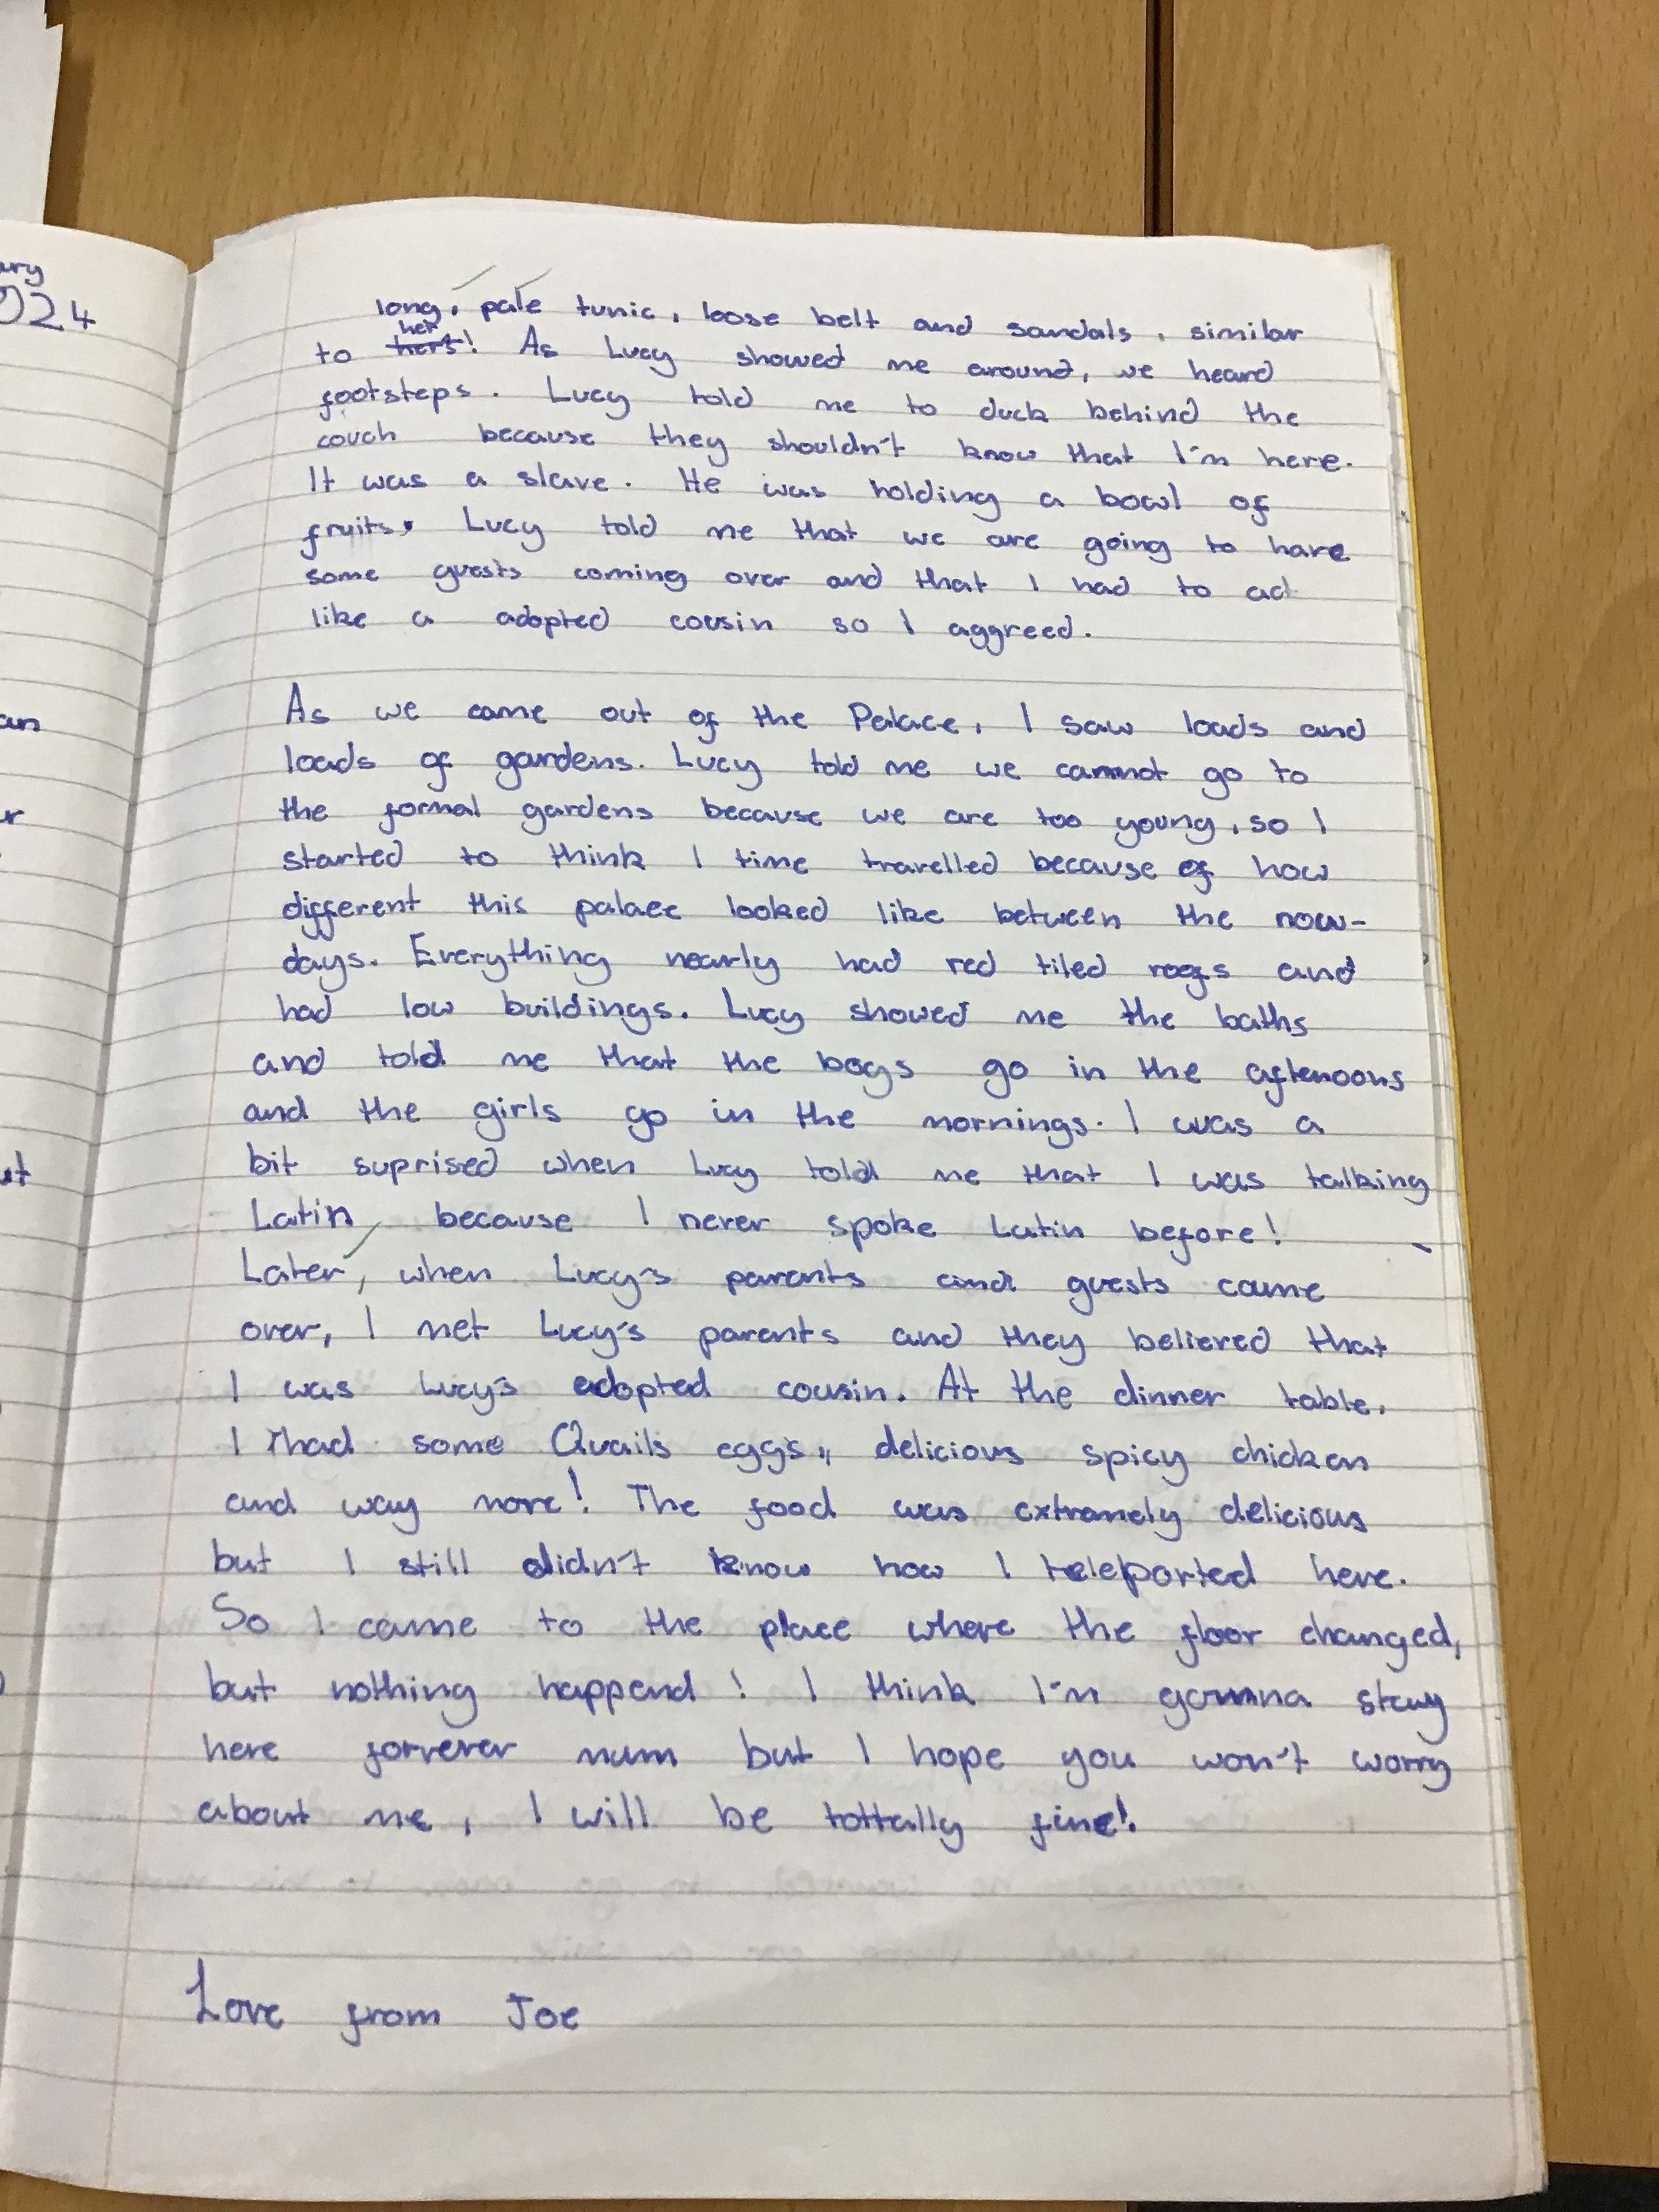 ary
2024
an
long, pale tunic, loose belt and sandals, similar
her
to hers! As Lucy showed me around, we heard
footsteps. Lucy told me to duck behind the
couch because they shouldn't know that I'm here.
It was a slave. He was holding a bowl of
fruits. Lucy told me that we are going to have
some guests coming over and that I had to act
like a adopted cousin so I aggreed.
As we came out of the Palace, I saw loads and
loads of gardens. Lucy told me we cannot go to
the formal gardens because we are too young, so I
started to think I time travelled because of how
different this palace looked like between the now-
days. Everything nearly had red tiled roofs and
had low buildings. Lucy showed me the baths
and told me that the boys go in the afternoons
and the girls go in the mornings. I was a
bit suprised when Lucy told me that I was talking
Latin, because I never spoke Latin before!
Later, when Lucy's parents and guests came
over, I met Lucy's parents and they believed that
I was Lucy's adopted cousin. At the dinner table,
I had some Quails eggs, delicious spicy chicken
and way more! The food was extremely delicious
but I still didn't know how I teleported here.
So I came to the place where the floor changed,
but nothing happend! I think I'm gonna stay
here forrever mum but I hope you won't worry
about me, I will be tottally fine!
Love from Joe